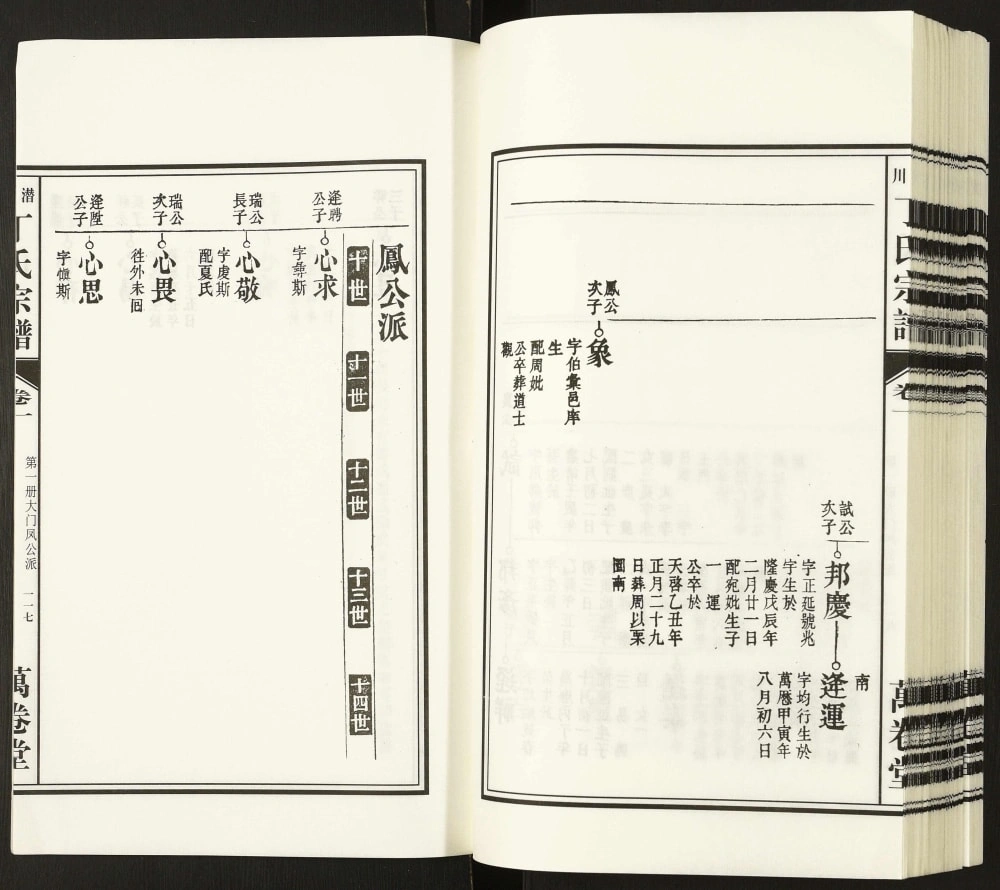 川
丁氏宗譜
卷一
萬卷堂
試公
次子
邦慶
字正延號兆
字生於
隆慶戊辰年
二月廿一日
配宛妣生子
一運
公卒於
天啓乙丑年
正月二十九
日葬周以栗
園南
南
逢運
字均行生於
萬曆甲寅年
八月初六日
鳳公
次子
象
字伯彙邑庠
生
配周妣
公卒葬道士
觀
鳳公派
十世
十一世
十二世
十三世
十四世
逢聘
公子
心求
字彜斯
瑞公
長子
心敬
字虔斯
配夏氏
瑞公
次子
心畏
徃外未囘
逢陞
公子
心思
字愼斯
潜
丁氏宗譜
卷一
第一册大门凤公派
一一七
萬卷堂